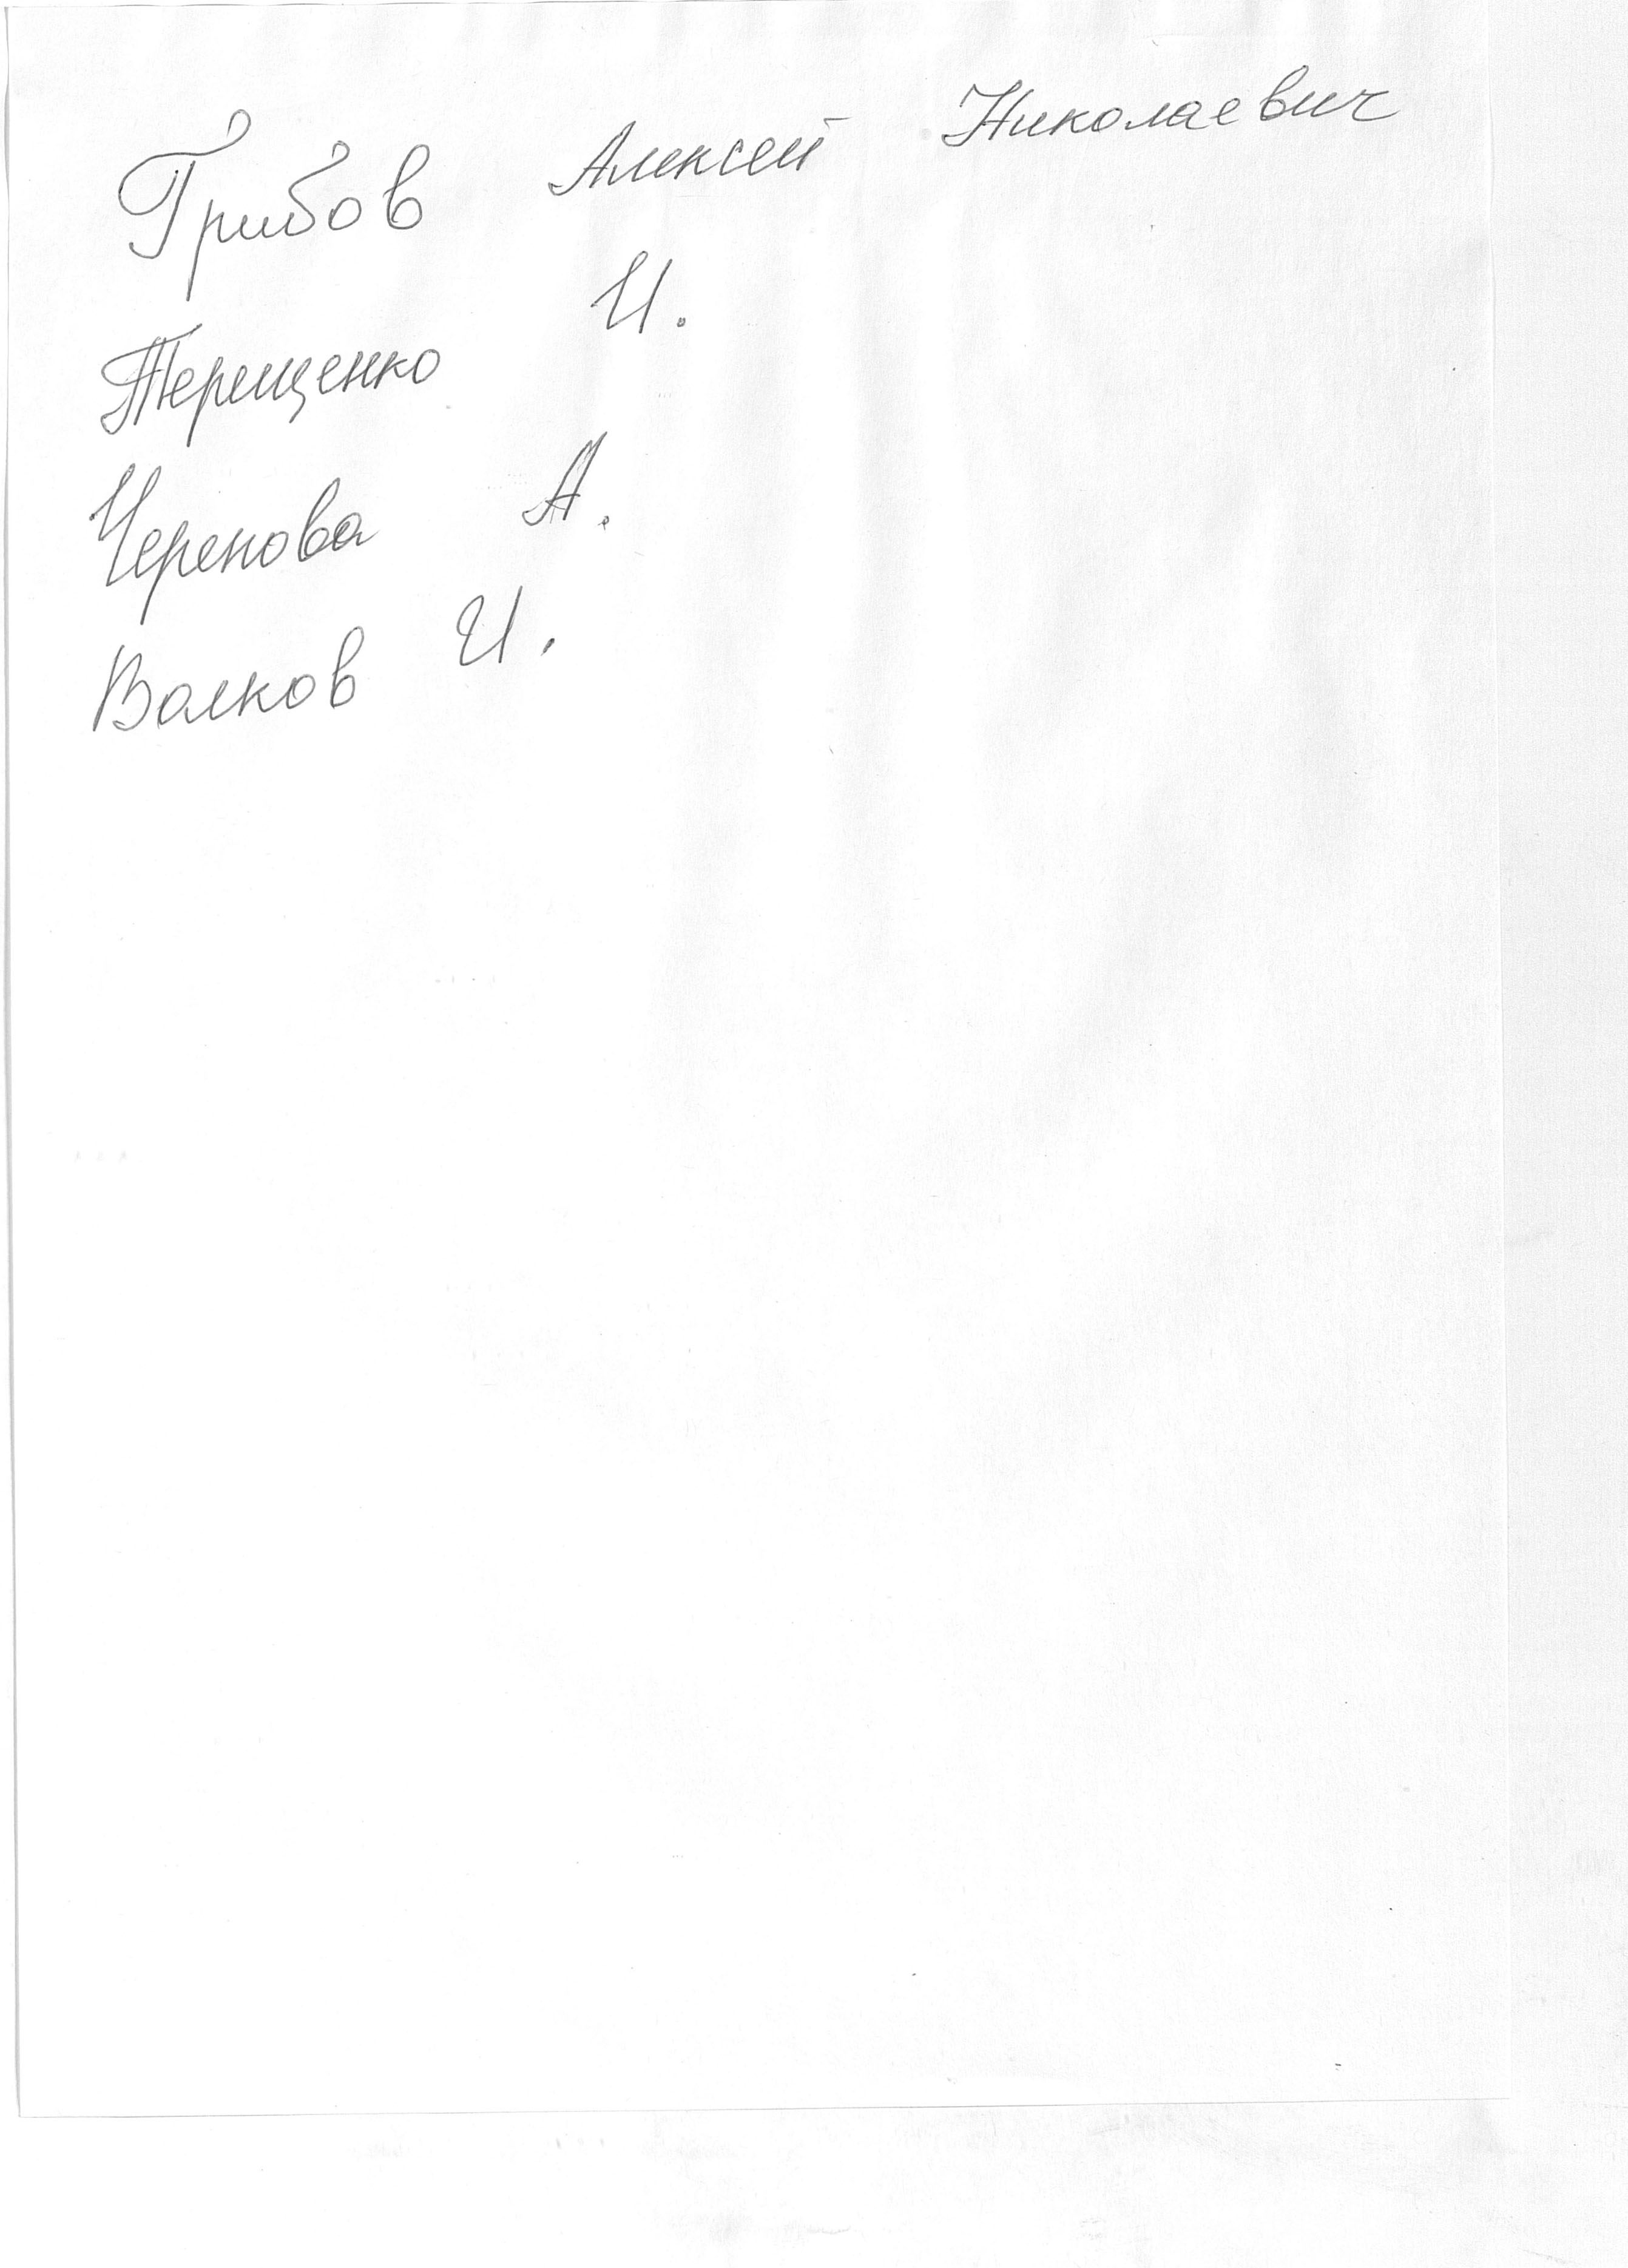 Грибов Алексей Николаевич
Терещенко И.
Черенова А.
Волков И.